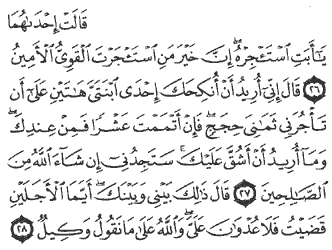 قَالَتْ إِحْدَىٰهُمَا
يَـٰٓأَبَتِ ٱسْتَـْٔجِرْهُ ۖ إِنَّ خَيْرَ مَنِ ٱسْتَـْٔجَرْتَ ٱلْقَوِىُّ ٱلْأَمِينُ
٢٦ قَالَ إِنِّىٓ أُرِيدُ أَنْ أُنكِحَكَ إِحْدَى ٱبْنَتَىَّ هَـٰتَيْنِ عَلَىٰٓ أَن
تَأْجُرَنِى ثَمَـٰنِىَ حِجَجٍ ۖ فَإِنْ أَتْمَمْتَ عَشْرًا فَمِنْ عِندِكَ ۖ
وَمَآ أُرِيدُ أَنْ أَشُقَّ عَلَيْكَ ۚ سَتَجِدُنِىٓ إِن شَآءَ ٱللَّهُ مِنَ
ٱلصَّـٰلِحِينَ ٢٧ قَالَ ذَٰلِكَ بَيْنِى وَبَيْنَكَ ۖ أَيَّمَا ٱلْأَجَلَيْنِ
قَضَيْتُ فَلَا عُدْوَٰنَ عَلَىَّ ۖ وَٱللَّهُ عَلَىٰ مَا نَقُولُ وَكِيلٌ ٢٨